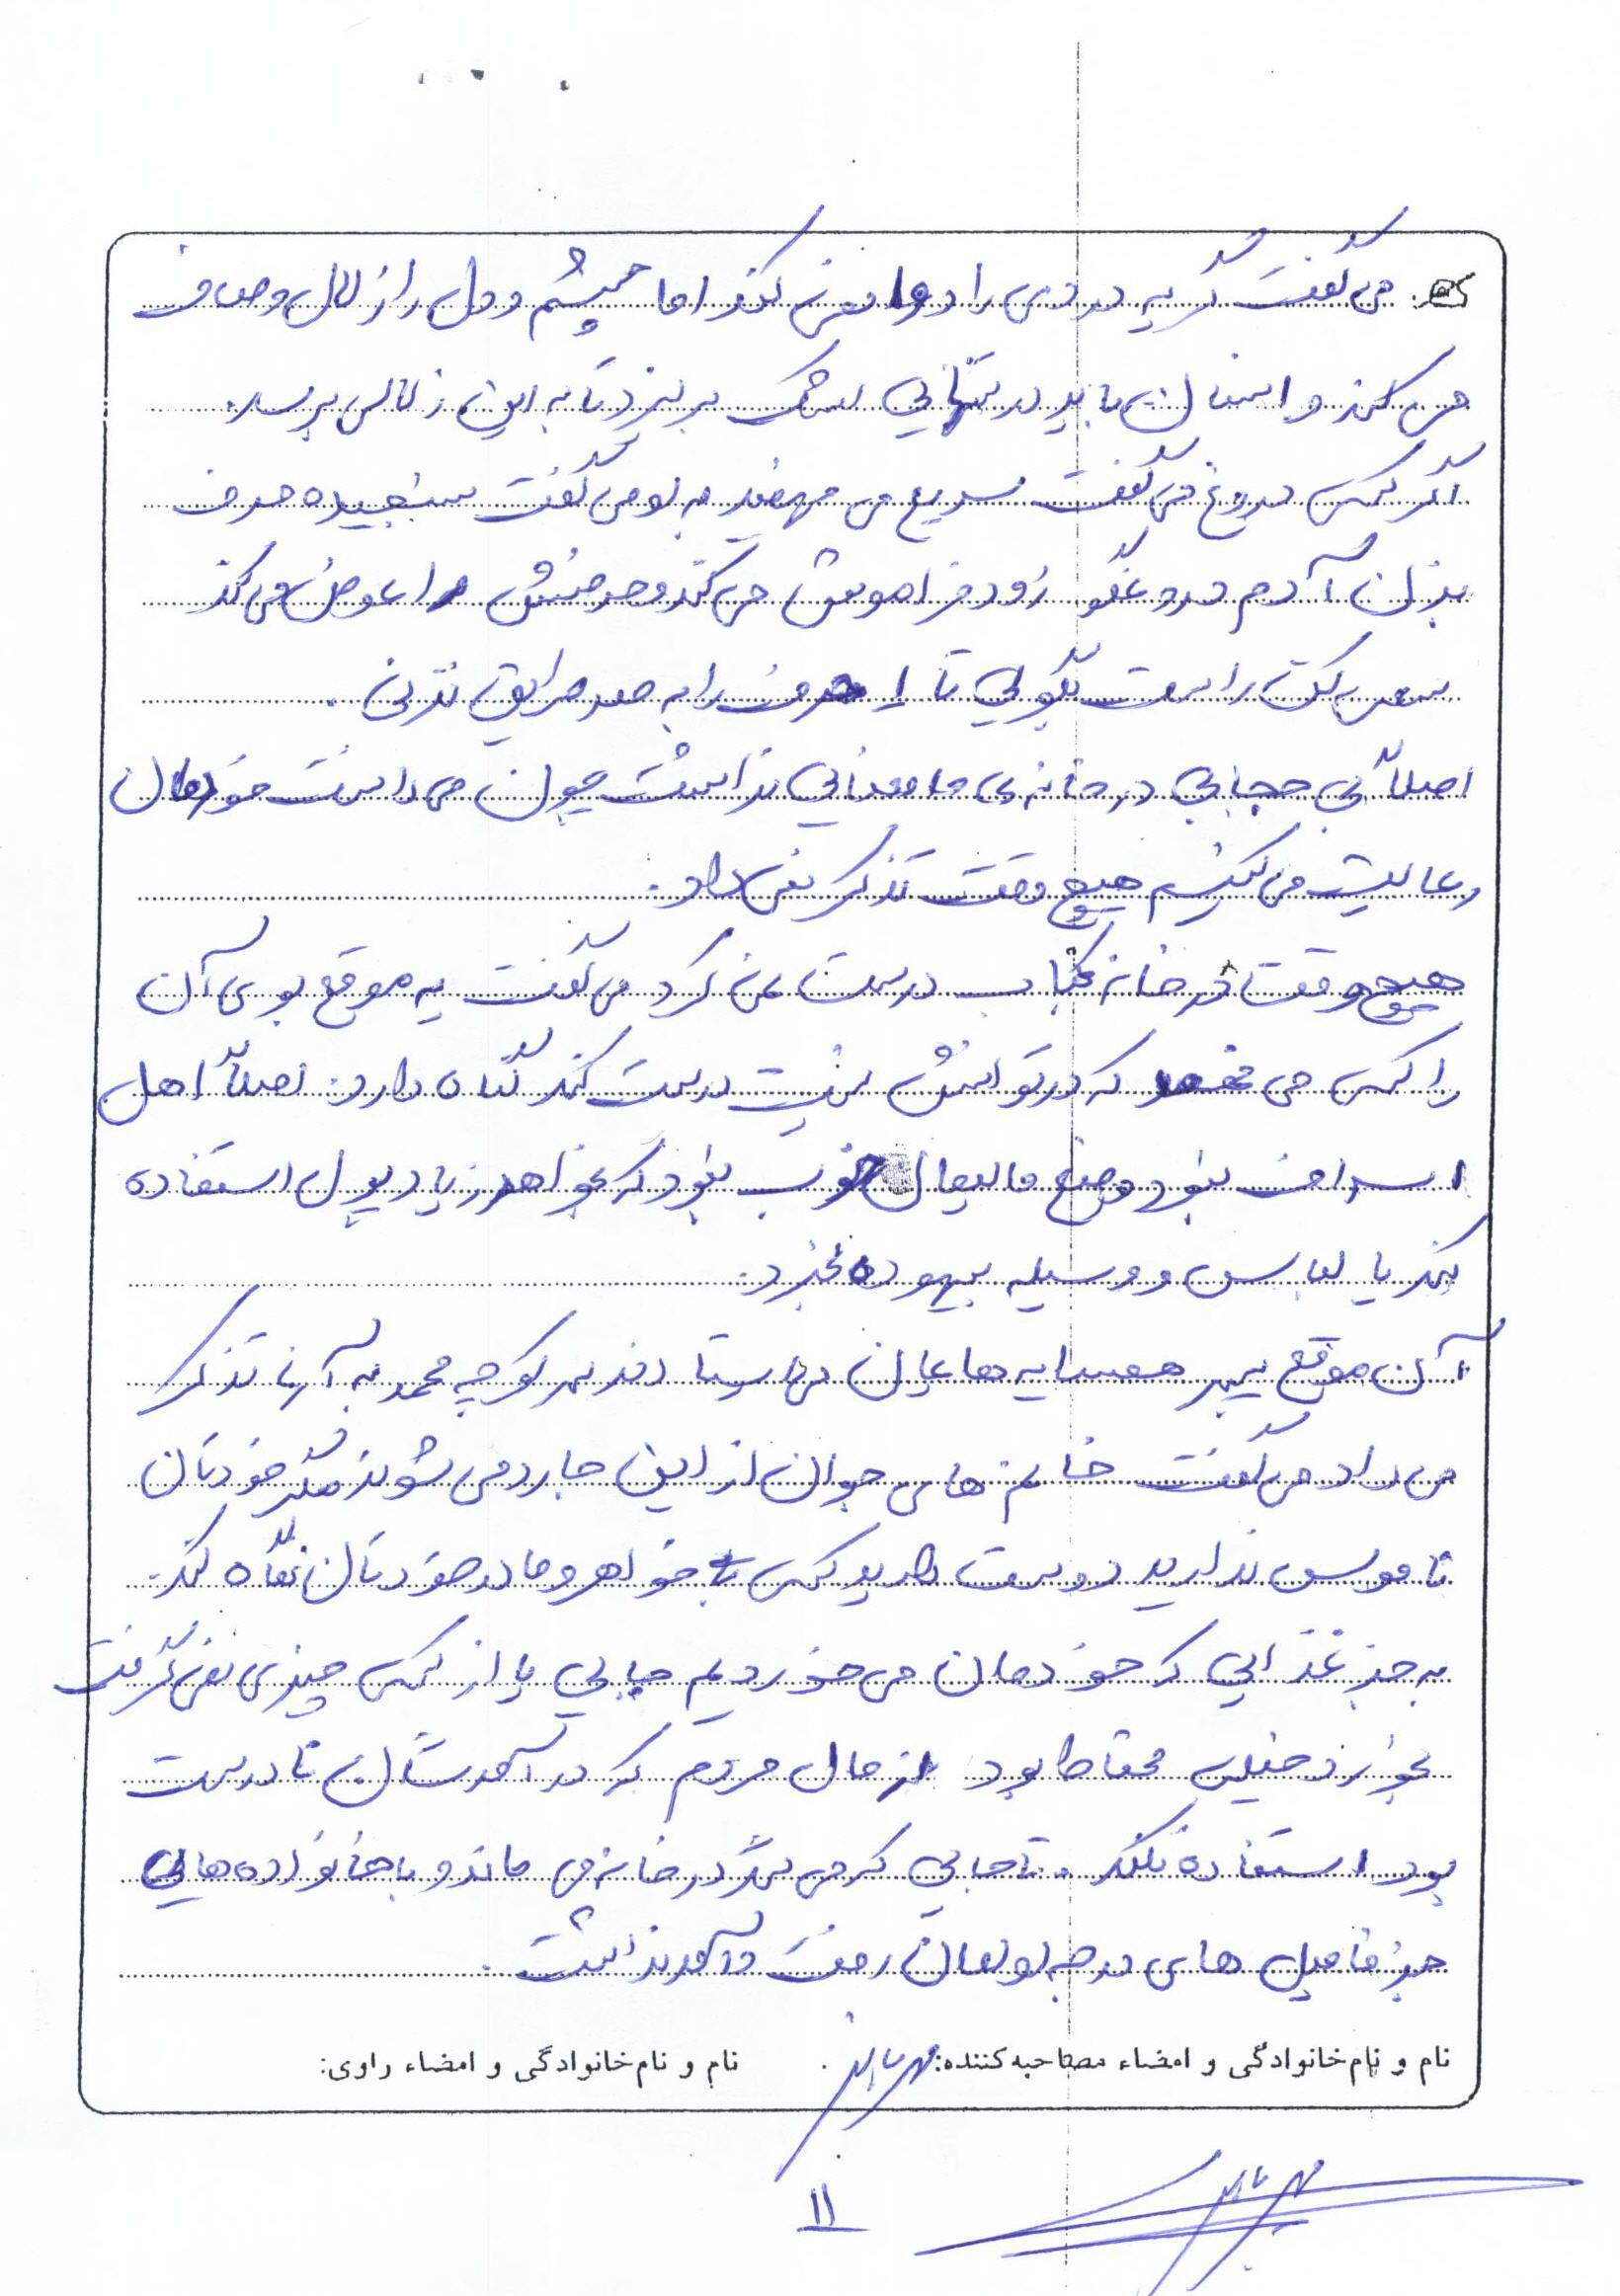 می گفت گریه دردی را دوا نمی کند اما چشم و دل را زلال و صاف
می کند و انسان باید در تنهایی اشک بریزد تا به این زلالی برسد.
اگر کسی دروغ می گفت سریع می فهمید به او می گفت سنجیده حرف
بزن آدم دروغگو زود فراموش می کند و حرفش را عوض می کند
سعی کن راست بگویی تا ۱ حرف را به صد طریق نزنی.
اصلاً بی حجابی در خانه ی ما معنایی نداشت چون می دانست خودمان
رعایت می کنیم هیچ وقت تذکر نمی داد.
هیچ وقت در خانه کباب درست نمی کرد می گفت یه موقع بوی آن
را کسی می فهمد که در توانش نیست درست کند گناه دارد. اصلاً اهل
اسراف نبود وضع مالیمان خوب نبود که بخواهد زیاد پول استفاده
کند یا لباس و وسیله بیهوده بخرد.
آن موقع پسر همسایه هایمان می ایستادند سر کوچه محمد به آنها تذکر
می داد می گفت خانم های جوان از این جا رد می شوند مگر خودتان
ناموس ندارید دوست دارید کسی به خواهر و مادر خودتان نگاه کند.
به جز غذایی که خودمان می خوردیم جایی یا از کسی چیزی نمی گرفت
بخورد خیلی محتاط بود از مال مردم که درآمدشان نادرست
بود استفاده نکند. تا جایی که می شد در خانه می ماند و با خانواده هایی
جز فامیل های درجه اولمان رفت و آمد نداشت.
نام و نام خانوادگی و امضاء مصاحبه کننده: نام و نام خانوادگی و امضاء راوی:
۱۱